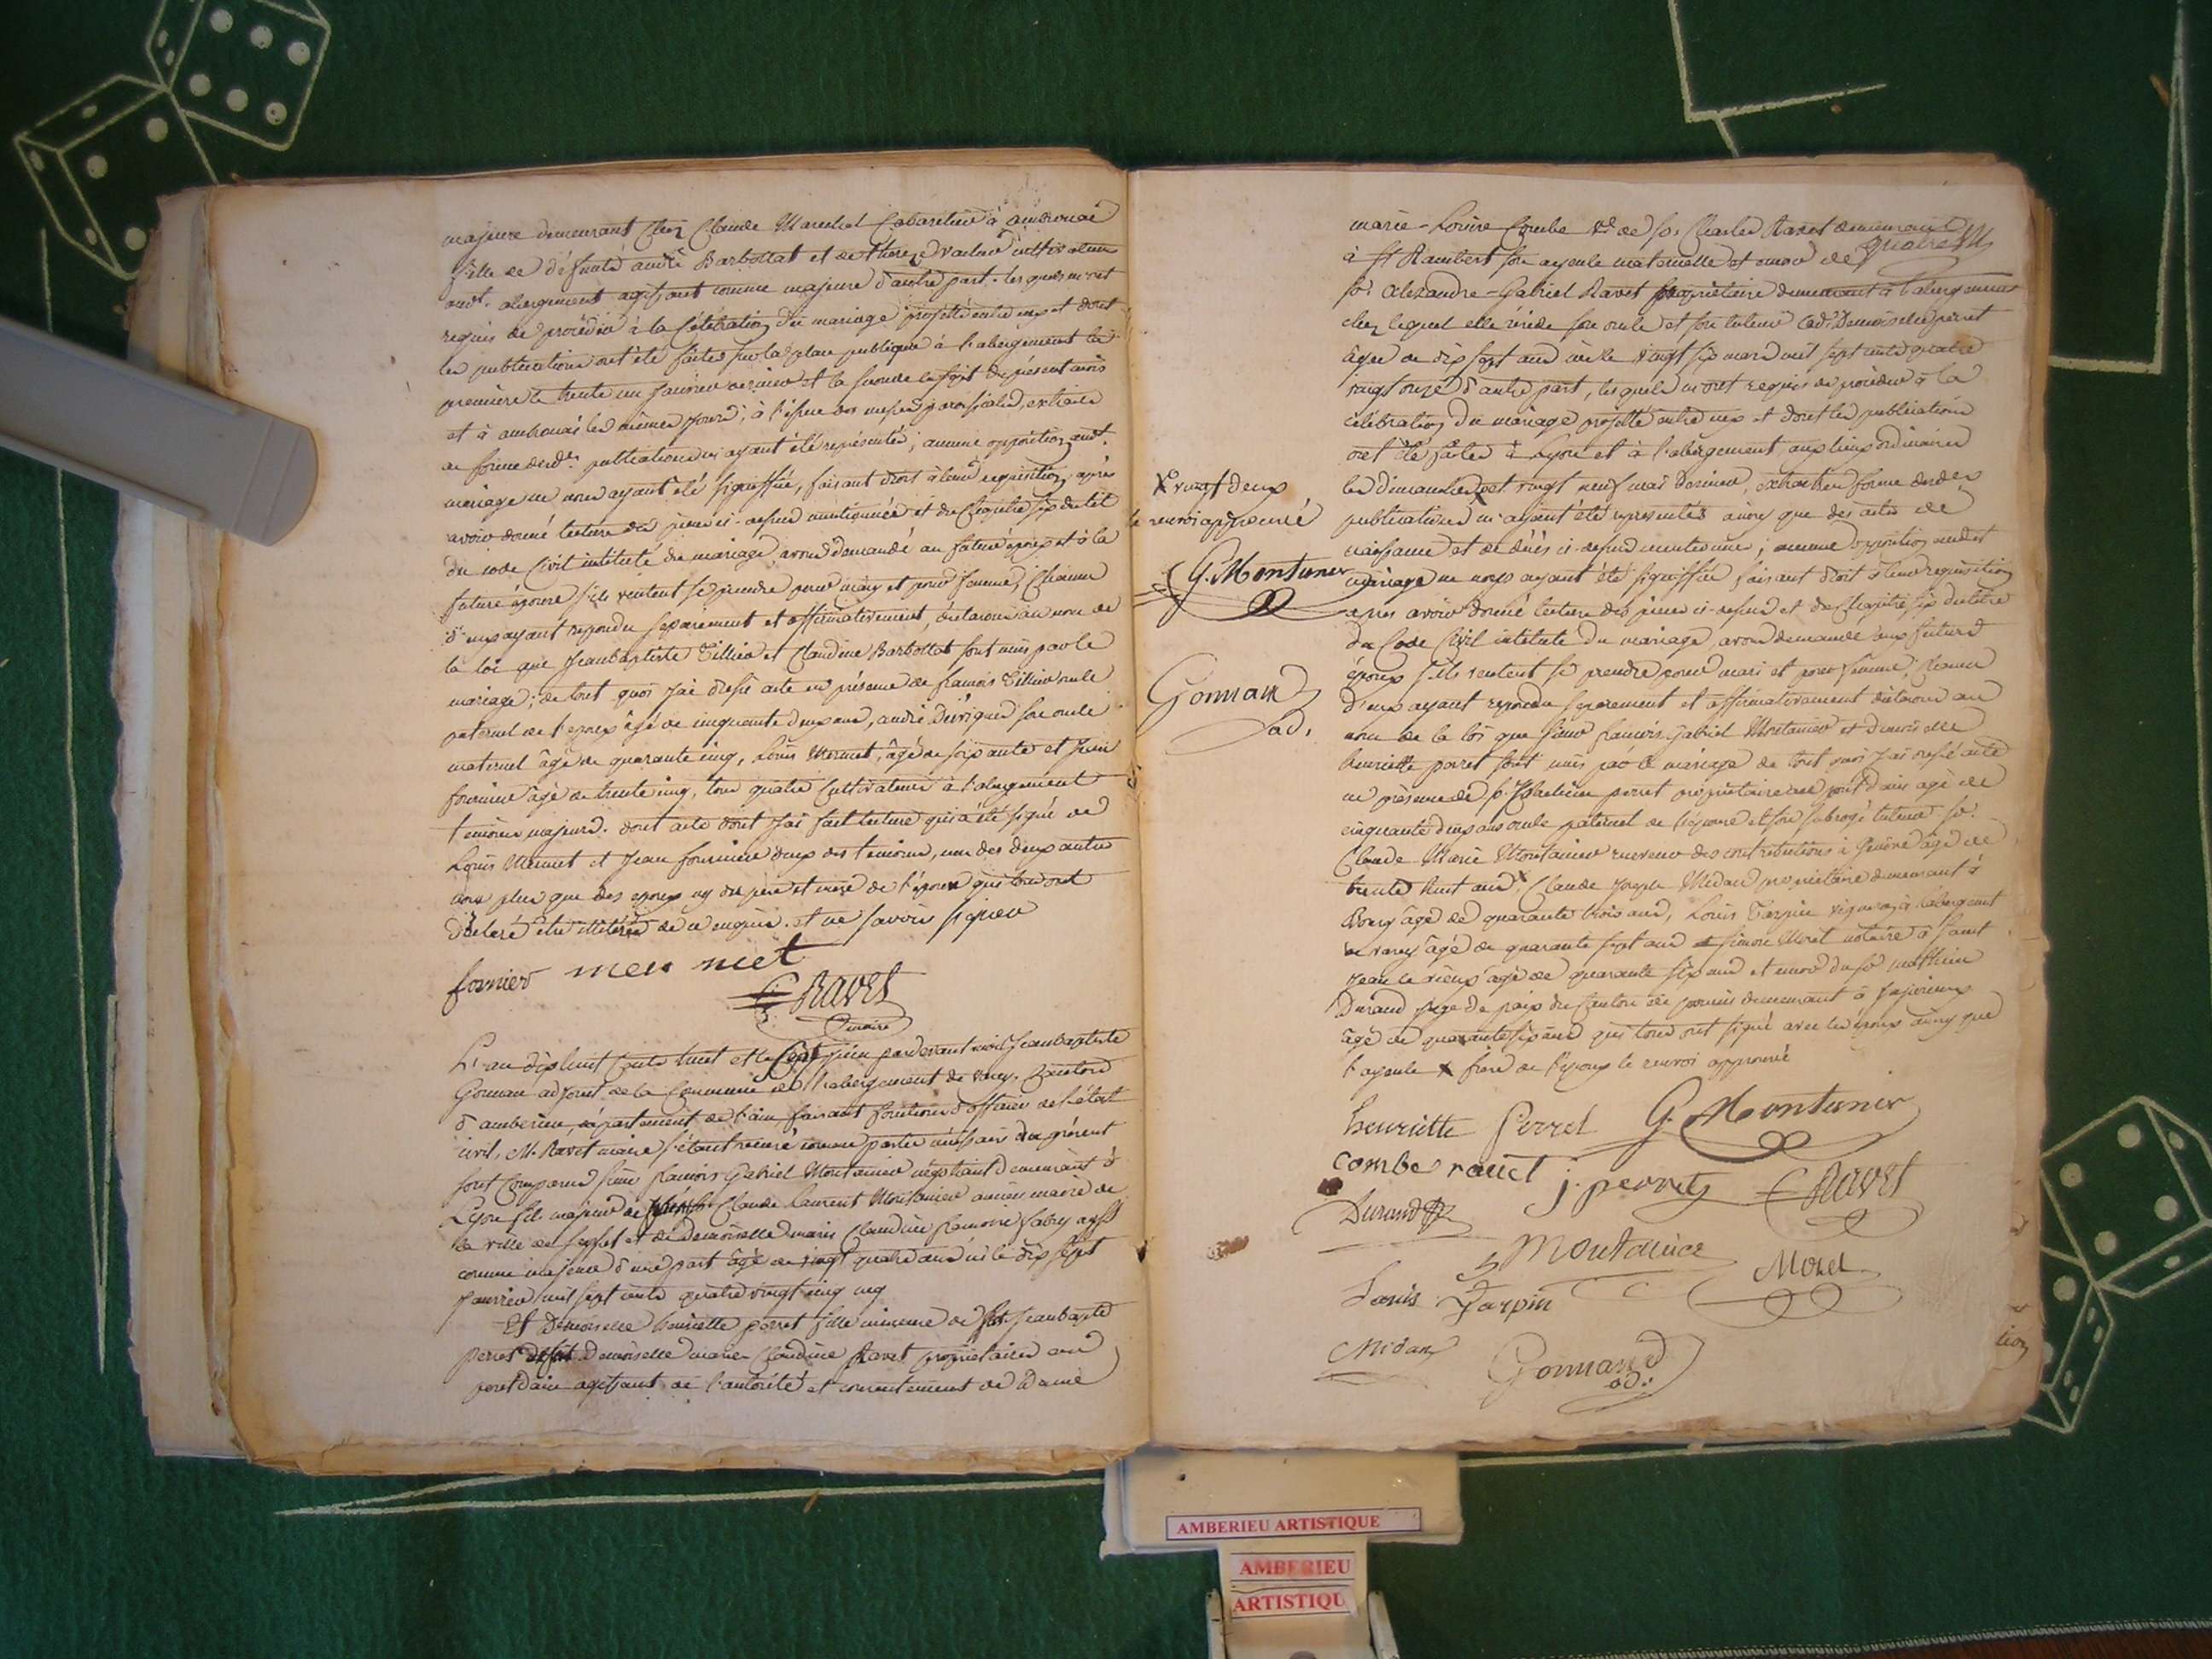 majeure demeurant chez Claude Marechal Cabaretier à ambronai
fille de défunts andré Barbollat et de therese cultivateur
audt. abergement agissant comme majeure d'autre part. lesquels m'ont
requis de procéder à la Célébration du mariage projetté entre eux et dont
les publications ont été faites sur la place publique à l'abergement la
première le trente un janvier dernier et la seconde le sept du présent mois
et à ambronai les mêmes jours, à l'issue des messes paroissiales, extraits
en forme desdes. publications m'ayant été représentés; aucune opposition audt.
mariage ne nous ayant été signiffiée, faisant droit à leur requisition, après
avoir donné lecture des pièces ci-dessus mentionnées et du Chapitre six du tit
du code Civil intitulé du mariage avons demandé au futur époux et à la
future épouse s'ils veulent se prendre pour mary et pour femme, Chacun
d'eux ayant repondu séparement et affirmativement, déclarons au nom de
la loi que Jeanbaptiste Tillier et Claudine Barbollat sont unis par le
mariage; de tout quoi J'ai dressé acte en présence de francois Tillier oncle
paternel de l'epoux âgé de cinquante deux ans, andré son oncle
maternel âgé de quarante cinq, Louis Mermet, âgé de soixante et Jean
fournier âgé de trente cinq, tous quatre Cultivateurs à l'abergement
temoins majeurs. dont acte dont J'ai fait lecture qui a été signé de
Louis Mermet et Jean fournier deux des temoins, non les deux autres
non plus que les epoux ny les père et mère de l'époux qui tous ont
déclaré être illitérés de ce enquis. et ne savoir signer
fornier mer met
C RAVET
maire
L'an dix huit Cents huit et le Sept juin pardevant moi Jeanbaptiste
Gonnan adjoint de la Commune de l'abergement de varey, Canton
d'amberieu, département de l'ain, faisant fonctions d'officier de l'état
civil, M. Ravet maire s'étant retiré comme partie nécessaire du présent
sont Comparus sieur francois Gabriel Montanier négotiant demeurant à
Lyon fils majeur de Claude Laurent Montanier ancien maire de
la ville de seyssel et de Demoiselle marie Claudine fabry agiss
comme majeur d'une part âgé de vingt quatre ans né le dix sept
Janvier mil sept cents quatre vingt cinq
Et Demoiselle henriette perret fille mineure de Jeanbaptiste
perret Demoiselle marie Claudine Ravet propriétaires au
pont d'ain agissant de l'autorité et consentement de Dame
marie-Louise Combe ve. de sr. Charles Ravet demeurant
à St Rambert son ayeule maternelle et encore de
sr. alexandre-Gabriel Ravet propriétaire demeurant à l'abergement
chez lequel elle réside son oncle et son tuteur lade. Demoiselle perret
âgée de dix sept ans née le vingt six mars mil sept cents quatre
vingt onze d'autre part, lesquels m'ont requis de procéder à la
célébration du mariage projetté entre eux et dont les publications
ont été faites à Lyon et à l'abergement aux lieux ordinaires
les dimanches X et vingt neuf mai dernier, extrait en forme desdes
publications m'ayant été représentés ainsy que des actes de
naissance et de décès ci-dessus mentionnés; aucune opposition audit
mariage ne nous ayant été signiffiée faisant droit à leur requisition
apres avoir donné lecture des pièces ci-dessus et du Chapitre six du titre
du Code Civil intitulé du mariage, avons demandé aux futurs
époux s'ils veulent se prendre pour mari et pour femme, chacun
d'eux ayant repondu séparement et affirmativement déclarons au
nom de la loi que sieur francois Gabriel Montanier et Demoiselle
henriette perret sont unis par le mariage de tout quoi J'ai dressé acte
en présence de sr. perret propriétaire au pont d'ain âgé de
cinquante deux ans oncle paternel de l'épouse et son subrogé tuteur sr.
Claude Marie Montanier receveur des contributions à Genève âgé de
trente huit ans X, Claude Joseph Midan propriétaire demeurant à
Bourg âgé de quarante trois ans, Louis Tarpin vigneron à l'abergement
de varey âgé de quarante sept ans et simon Morel notaire à Saint
Jean le vieux âgé de quarante six ans et encore du sr. mathieu
Durand juge de paix du Canton de poncin demeurant à Jujurieux
âgé de quarante six ans qui tous ont signé avec les époux ainsy que
l'ayeule X frere de l'époux le renvoi approuvé
X vingt deux
le renvoi approuvé
G. Montanier
Gonnan
ad.
henriette Perret G. Montanier
combe ravet j. perret C RAVET
Durand Montanier Morel
Louis Tarpin
Midan Gonnan
ad.
AMBERIEU ARTISTIQUE
AMBERIEU
ARTISTIQU